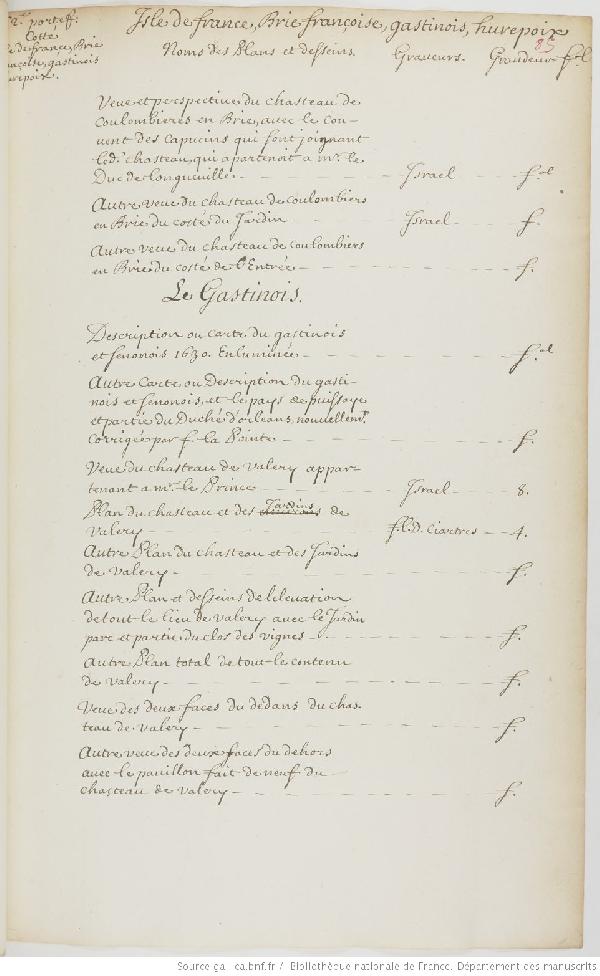 portef:
Cotté
de france, Brie
françoise, gastinois
hurepoix.
Isle de france, Brie françoise, gastinois, hurepoix
85
Noms des Plans et desseins. Graveurs. Grandeur
Veue et perspective du chasteau de
Coulombieres en Brie, avec le Cou-
vent des Capucins qui sont joignant
led. chasteau, qui apartenoit a mr. le
Duc de Longueville. Israel f.el
Autre veue du chasteau de Coulombiers
en Brie du costé du Jardin Israel f.
Autre veue du chasteau de Coulombiers
en Brie du costé de l'Entrée f.
Le Gastinois.
Description ou carte du gastinois
et senonois 1630. Enluminée f.el
Autre Carte ou Description du gasti-
nois et senonois, et le pays de puissaye
et partie du Duché d'orleans, nouvellemt.
Corrigée par f. la Pointe f.
Veue du chasteau de Valery appar-
tenant a mr. le Prince Israel 8.
Plan du chasteau et des Jardins de
Valery fl. D. Ciartres 4.
Autre Plan du chasteau et des Jardins
de Valery f.
Autre Plan et desseins de l'elevation
de tout le lieu de Valery avec le Jardin
parc et partie du clos des vignes f.
Autre Plan total de tout le contenu
de Valery f.
Veue des deux faces du dedans du chas-
teau de Valery f.
Autre veue des deux faces du dehors
avec le pavillon fait de neuf du
chasteau de Valery f.
Source gallica.bnf.fr / Bibliothèque nationale de France. Département des manuscrits